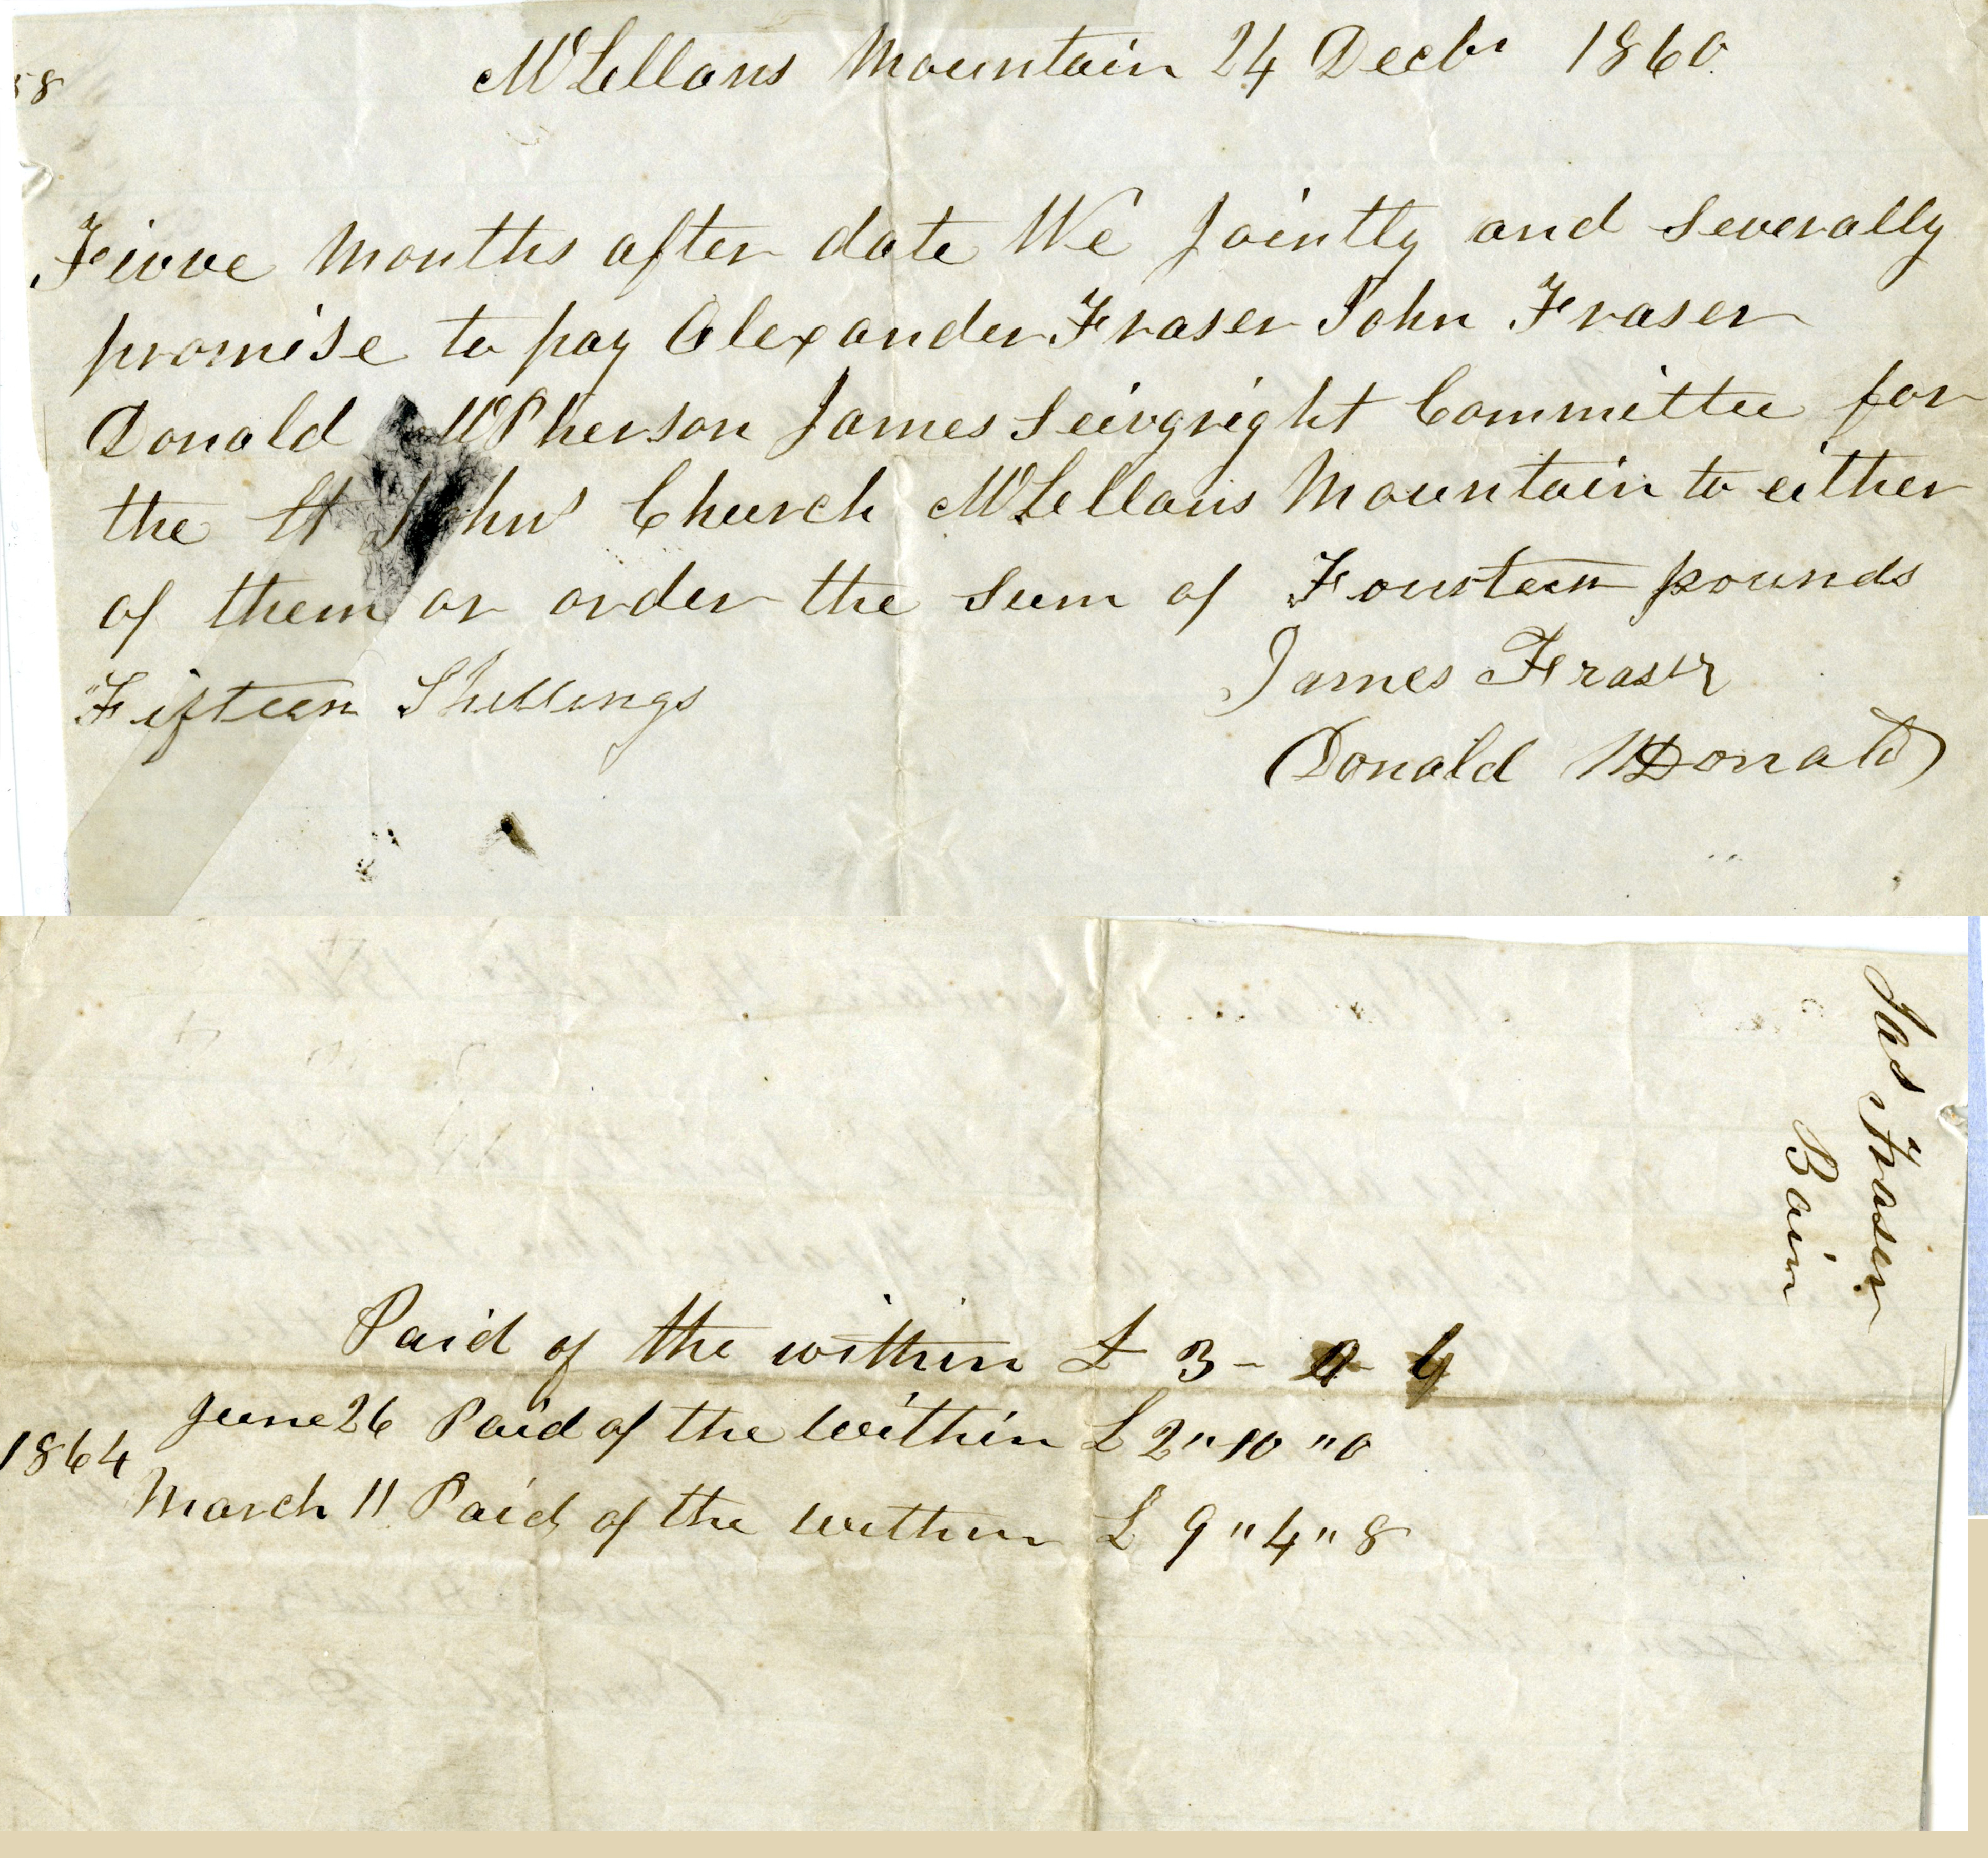 58
McLellans Mountain 24 Decbr 1860
Feivve Months after date We Jointly and Severally
promise to pay Alexander Fraser John Fraser
Donald McPherson James Seivgright Committee for
the St Johns Church McLellans Mountain to either
of them or order the Sum of Fourteen pounds
Fifteen Shillings
James Fraser
Donald McDonald
Jas Fraser
Bain
Paid of the within £ 3 -
June 26 Paid of the Within £ 2 " 10 " 0
1864
March 11 Paid of the within £ 9 " 4 " 8